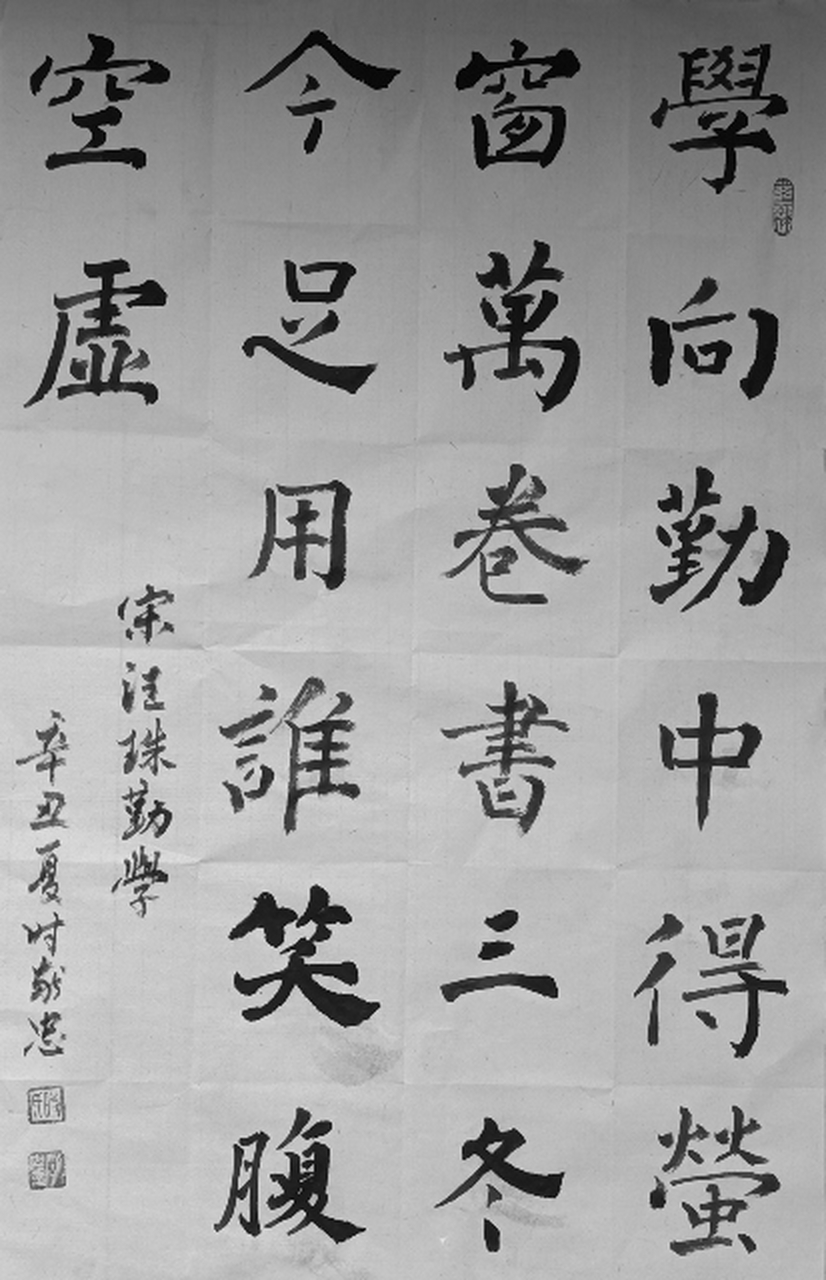 學向勤中得螢
窗萬卷書三冬
今足用誰笑腹
空虛
宋汪珠勤學
辛丑夏时献忠